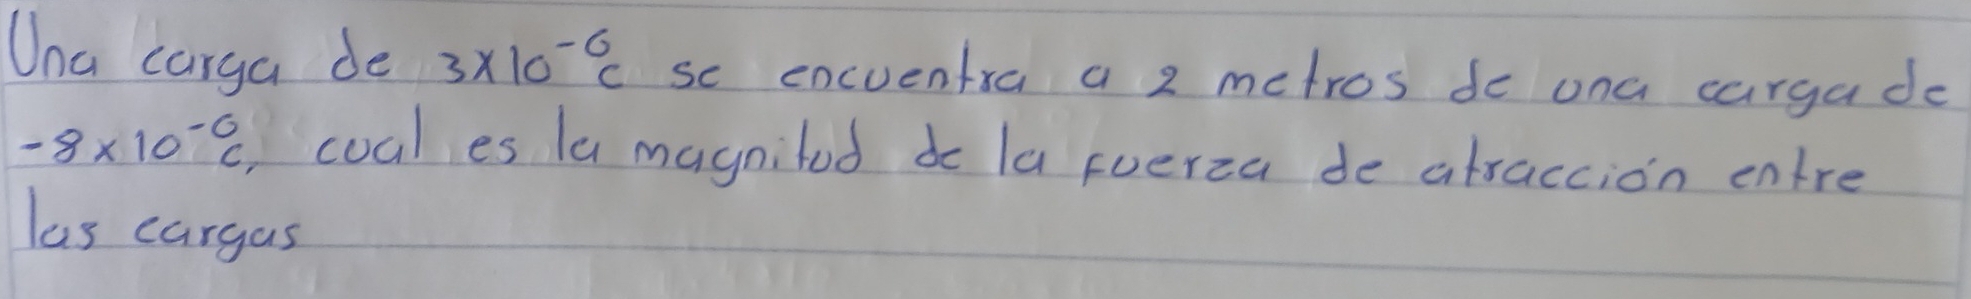 Una carga de 3x10⁻⁶c se encuentra a 2 metros de una carga de
-8x10⁻⁶c, cual es la magnitud de la fuerza de atracción entre
las cargas